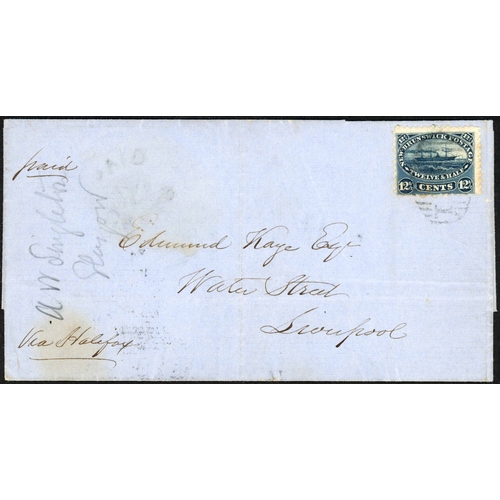 NEW BRUNSWICK POSTAGE
TWELVE & HALF
12½ CENTS 12½
paid
Edmund Kaye Esqr
Water Street
Liverpool
Via Halifax